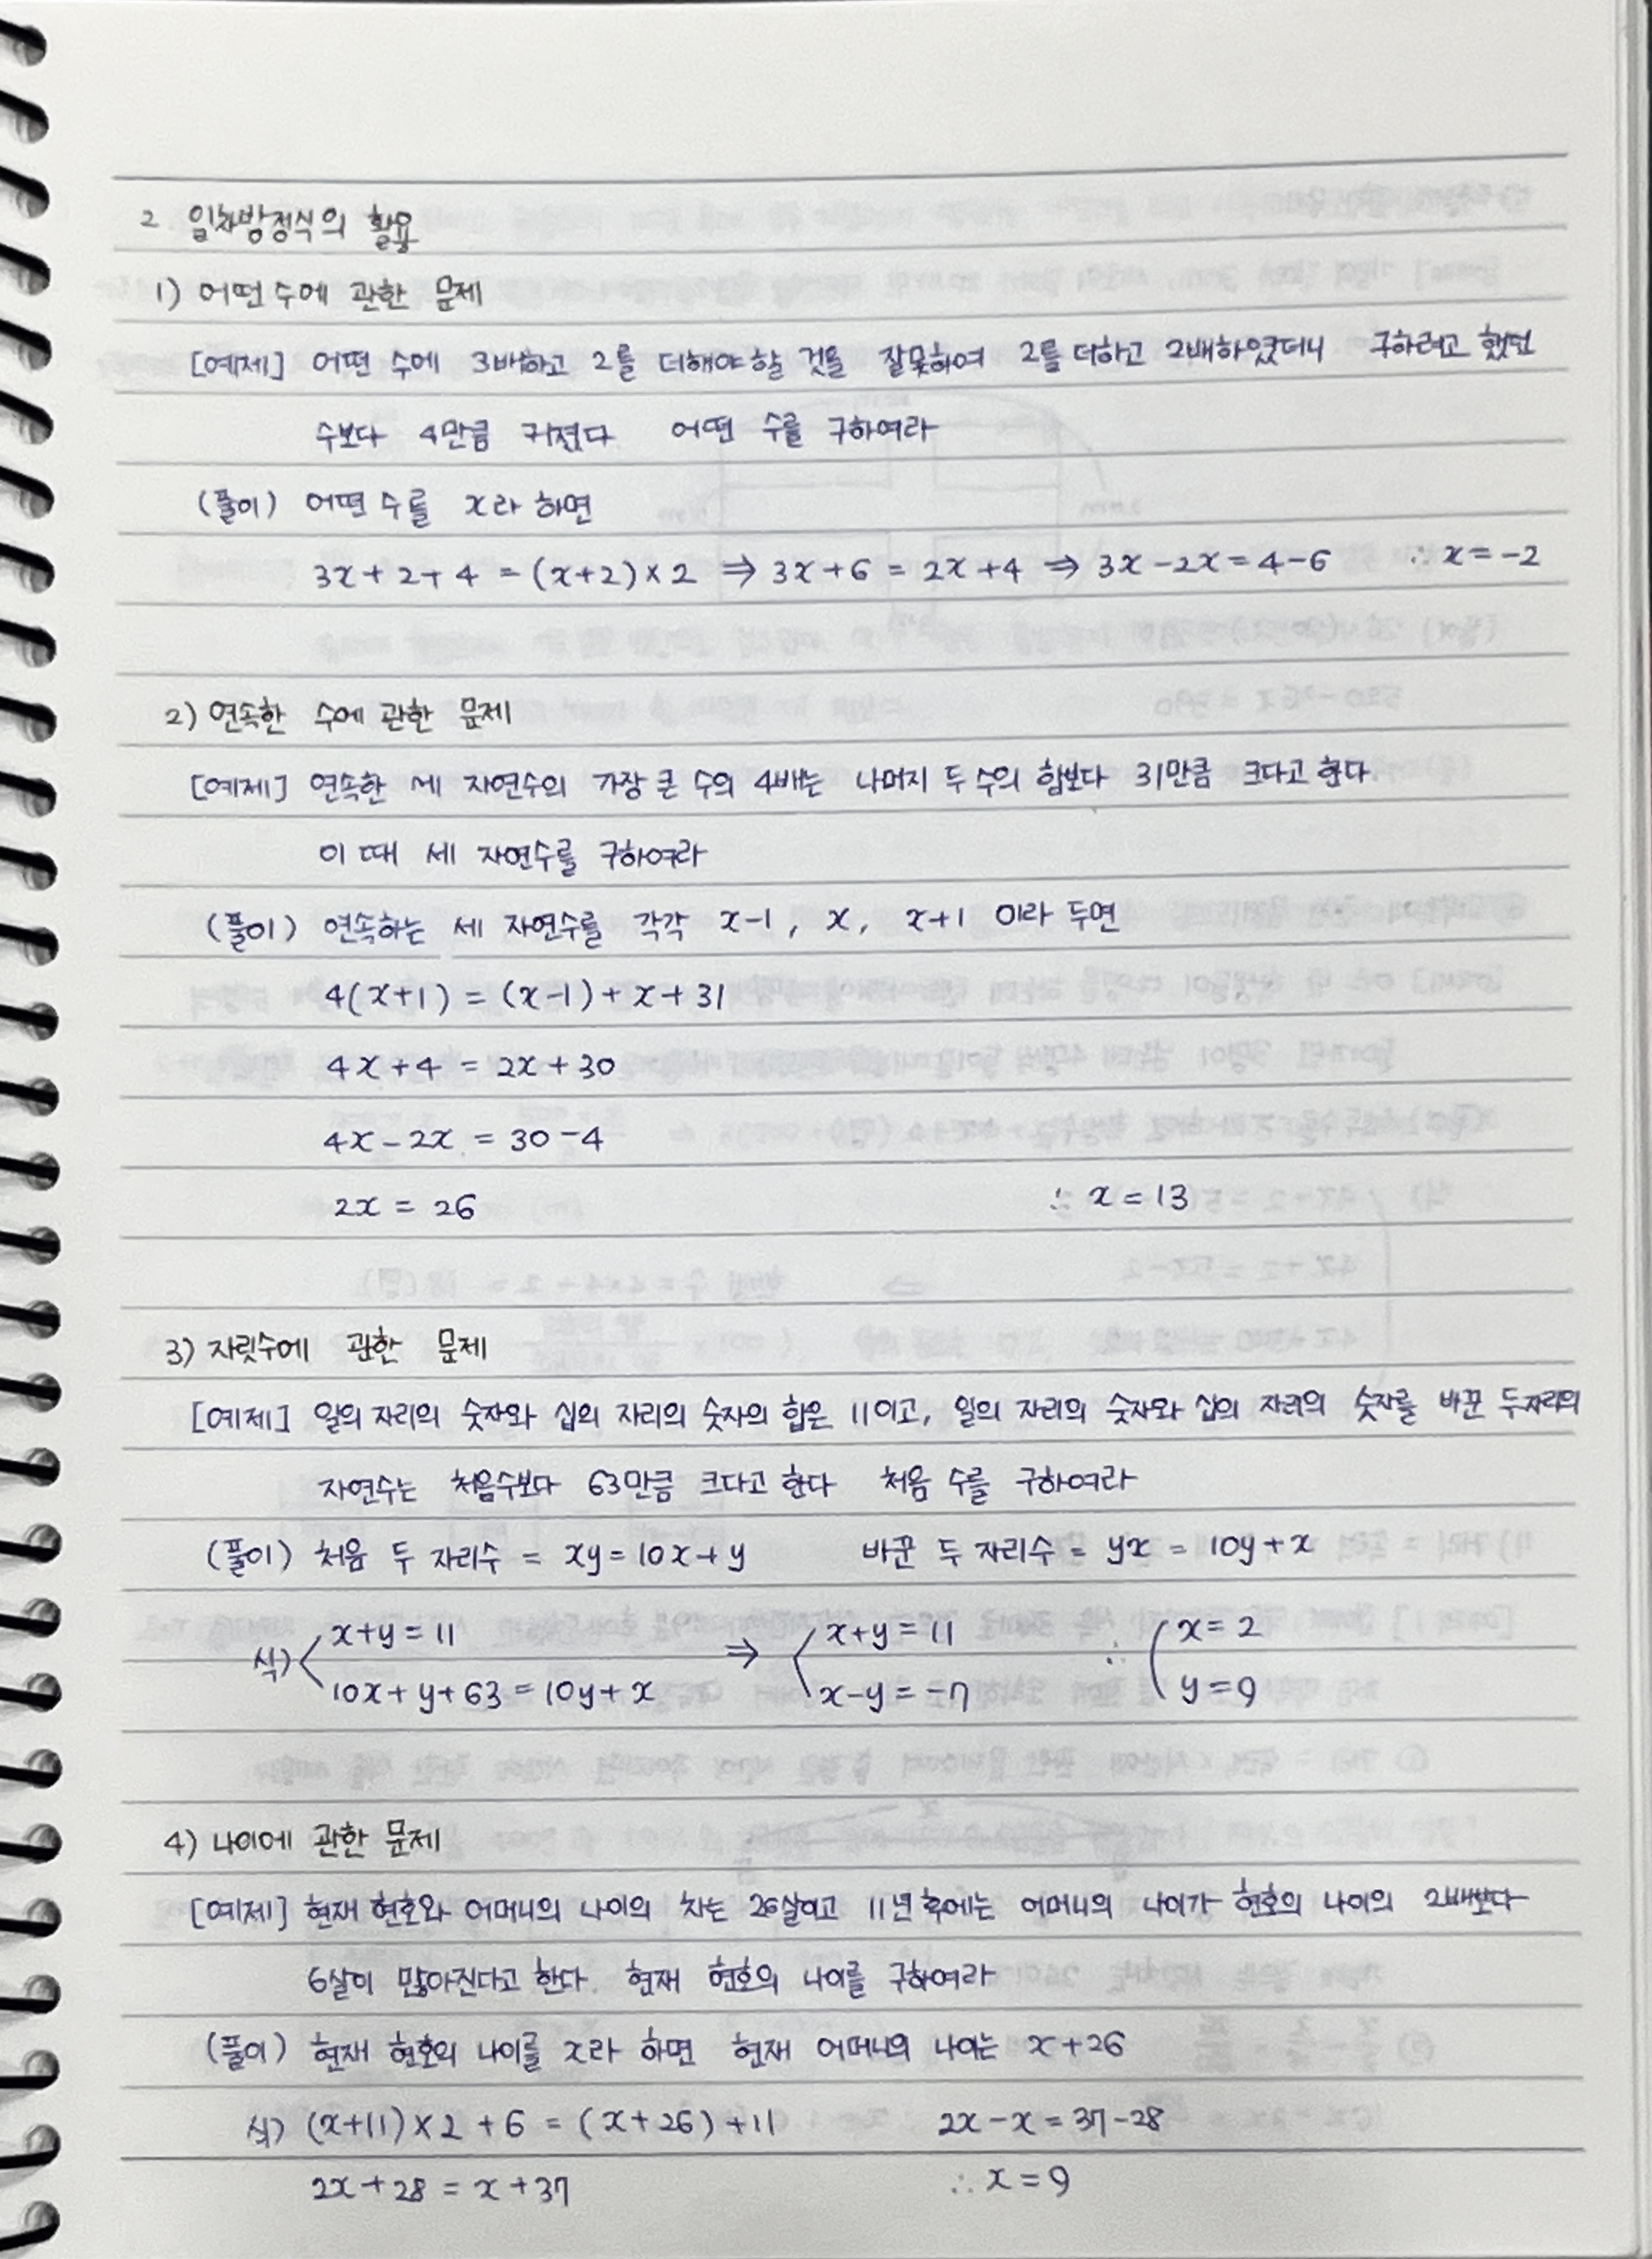 2 일차방정식의 활용
1) 어떤 수에 관한 문제
[예제] 어떤 수에 3배하고 2를 더해야 할 것을 잘못하여 2를 더하고 2배하였더니 구하려고 했던
수보다 4만큼 커졌다 어떤 수를 구하여라
(풀이) 어떤 수를 x라 하면
3x + 2 + 4 = (x+2) × 2 ⇒ 3x + 6 = 2x + 4 ⇒ 3x - 2x = 4 - 6 ∴ x = -2
2) 연속한 수에 관한 문제
[예제] 연속한 세 자연수의 가장 큰 수의 4배는 나머지 두 수의 합보다 31만큼 크다고 한다.
이 때 세 자연수를 구하여라
(풀이) 연속하는 세 자연수를 각각 x-1, x, x+1 이라 두면
4(x+1) = (x-1) + x + 31
4x + 4 = 2x + 30
4x - 2x = 30 - 4
2x = 26 ∴ x = 13
3) 자릿수에 관한 문제
[예제] 일의 자리의 숫자와 십의 자리의 숫자의 합은 11이고, 일의 자리의 숫자와 십의 자리의 숫자를 바꾼 두자리의
자연수는 처음수보다 63만큼 크다고 한다 처음 수를 구하여라
(풀이) 처음 두 자리수 = xy = 10x + y 바꾼 두 자리수 = yx = 10y + x
식) x + y = 11 ⇒ x + y = 11 ∴ x = 2
10x + y + 63 = 10y + x x - y = -7 y = 9
4) 나이에 관한 문제
[예제] 현재 현호와 어머니의 나이의 차는 26살이고 11년 후에는 어머니의 나이가 현호의 나이의 2배보다
6살이 많아진다고 한다. 현재 현호의 나이를 구하여라
(풀이) 현재 현호의 나이를 x라 하면 현재 어머니의 나이는 x + 26
식) (x+11) × 2 + 6 = (x+26) + 11 2x - x = 37 - 28
2x + 28 = x + 37 ∴ x = 9